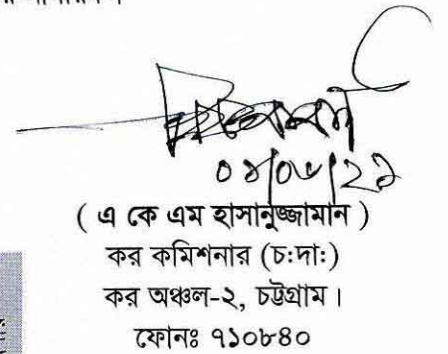 ০১/০৮/২১
( এ কে এম হাসানুজ্জামান )
কর কমিশনার (চ:দা:)
কর অঞ্চল-২, চট্টগ্রাম।
ফোনঃ ৭১০৮৪০